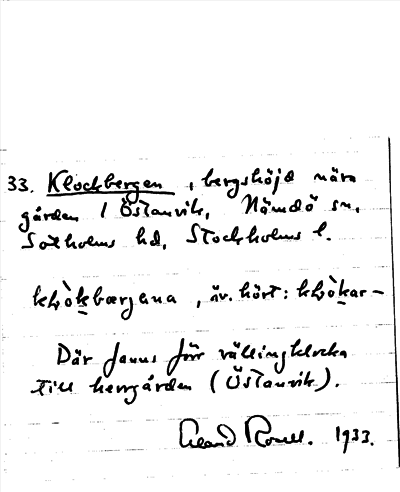 33. Klockbergen, bergshöjd nära
gården i Östanvik, Nämdö sn,
Sotholms hd, Stockholms l.
klòkbærjena, äv. hört: klòkar-
Där fanns förr vällingklocka
till herrgården (Östanvik).
Erland Rosell. 1933.